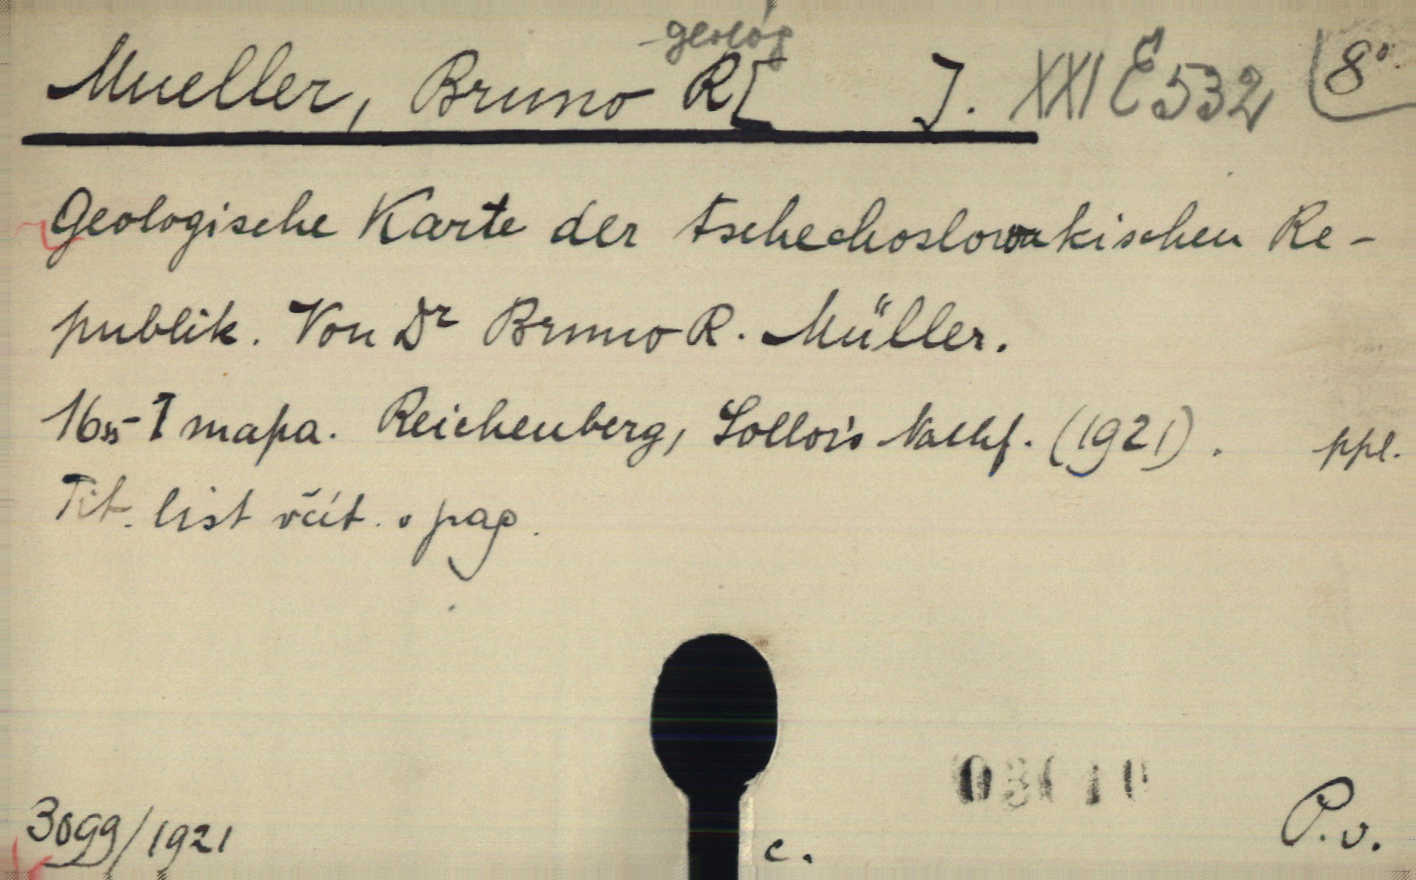 geolog
Mueller, Bruno R[ ]. XXI E 532 8°
Geologische Karte der tschechoslowakischen Re-
publik. Von Dr Bruno R. Müller.
16 ss - 1 mapa. Reichenberg, Sollors Nachf. (1921). ppl.
Tit. list včít. v pag.
3099/1921 c. P. v.